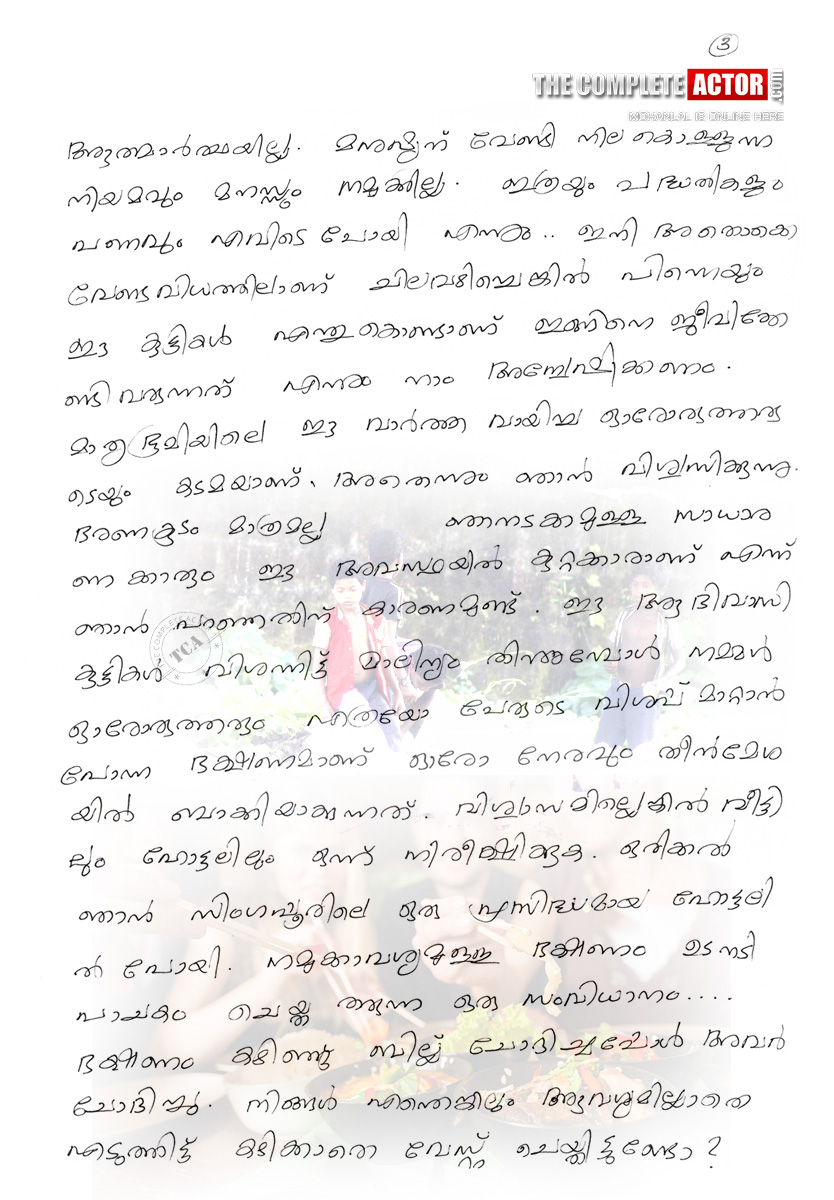 3
THE COMPLETE ACTOR .com
MOHANLAL IS ONLINE HERE
ആത്മാർത്ഥയില്ല. മനുഷ്യന് വേണ്ടി നിലകൊള്ളുന്ന
നിയമവും മനസ്സും നമുക്കില്ല. ഇത്രയും പദ്ധതികളും
പണവും എവിടെ പോയി എന്നും.. ഇനി അതൊക്കെ
വേണ്ടവിധത്തിലാണ് ചിലവഴിച്ചെങ്കിൽ പിന്നെയും
ഈ കുട്ടികൾ എന്തുകൊണ്ടാണ് ഇങ്ങിനെ ജീവിക്കേ
ണ്ടി വരുന്നത് എന്നും നാം അന്വേഷിക്കണം.
മാതൃഭൂമിയിലെ ഈ വാർത്ത വായിച്ച ഓരോരുത്തരു
ടെയും കടമയാണ്. അതെന്നും ഞാൻ വിശ്വസിക്കുന്നു.
ഭരണകൂടം മാത്രമല്ല ഞാനടക്കമുള്ള സാധാര
ണക്കാരും ഈ അവസ്ഥയിൽ കുറ്റക്കാരാണ് എന്ന്
ഞാൻ പറഞ്ഞതിന് കാരണമുണ്ട്. ഈ ആദിവാസി
കുട്ടികൾ വിശന്നിട്ട് മാലിന്യം തിന്നുമ്പോൾ നമ്മൾ
ഓരോരുത്തരും എത്രയോ പേരുടെ വിശപ്പ് മാറ്റാൻ
പോന്ന ഭക്ഷണമാണ് ഓരോ നേരവും തീൻമേശ
യിൽ ബാക്കിയാക്കുന്നത്. വിശ്വാസമില്ലെങ്കിൽ വീട്ടി
ലും ഹോട്ടലിലും ഒന്ന് നിരീക്ഷിക്കുക. ഒരിക്കൽ
ഞാൻ സിംഗപ്പൂരിലെ ഒരു പ്രസിദ്ധമായ ഹോട്ടലി
ൽ പോയി. നമുക്കാവശ്യമുള്ള ഭക്ഷണം ഉടനടി
പാചകം ചെയ്തു തരുന്ന ഒരു സംവിധാനം....
ഭക്ഷണം കഴിഞ്ഞു ബില്ല് ചോദിച്ചപ്പോൾ അവർ
ചോദിച്ചു. നിങ്ങൾ എന്തെങ്കിലും ആവശ്യമില്ലാതെ
എടുത്തിട്ട് കഴിക്കാതെ വേസ്റ്റ് ചെയ്തിട്ടുണ്ടോ?
TCA